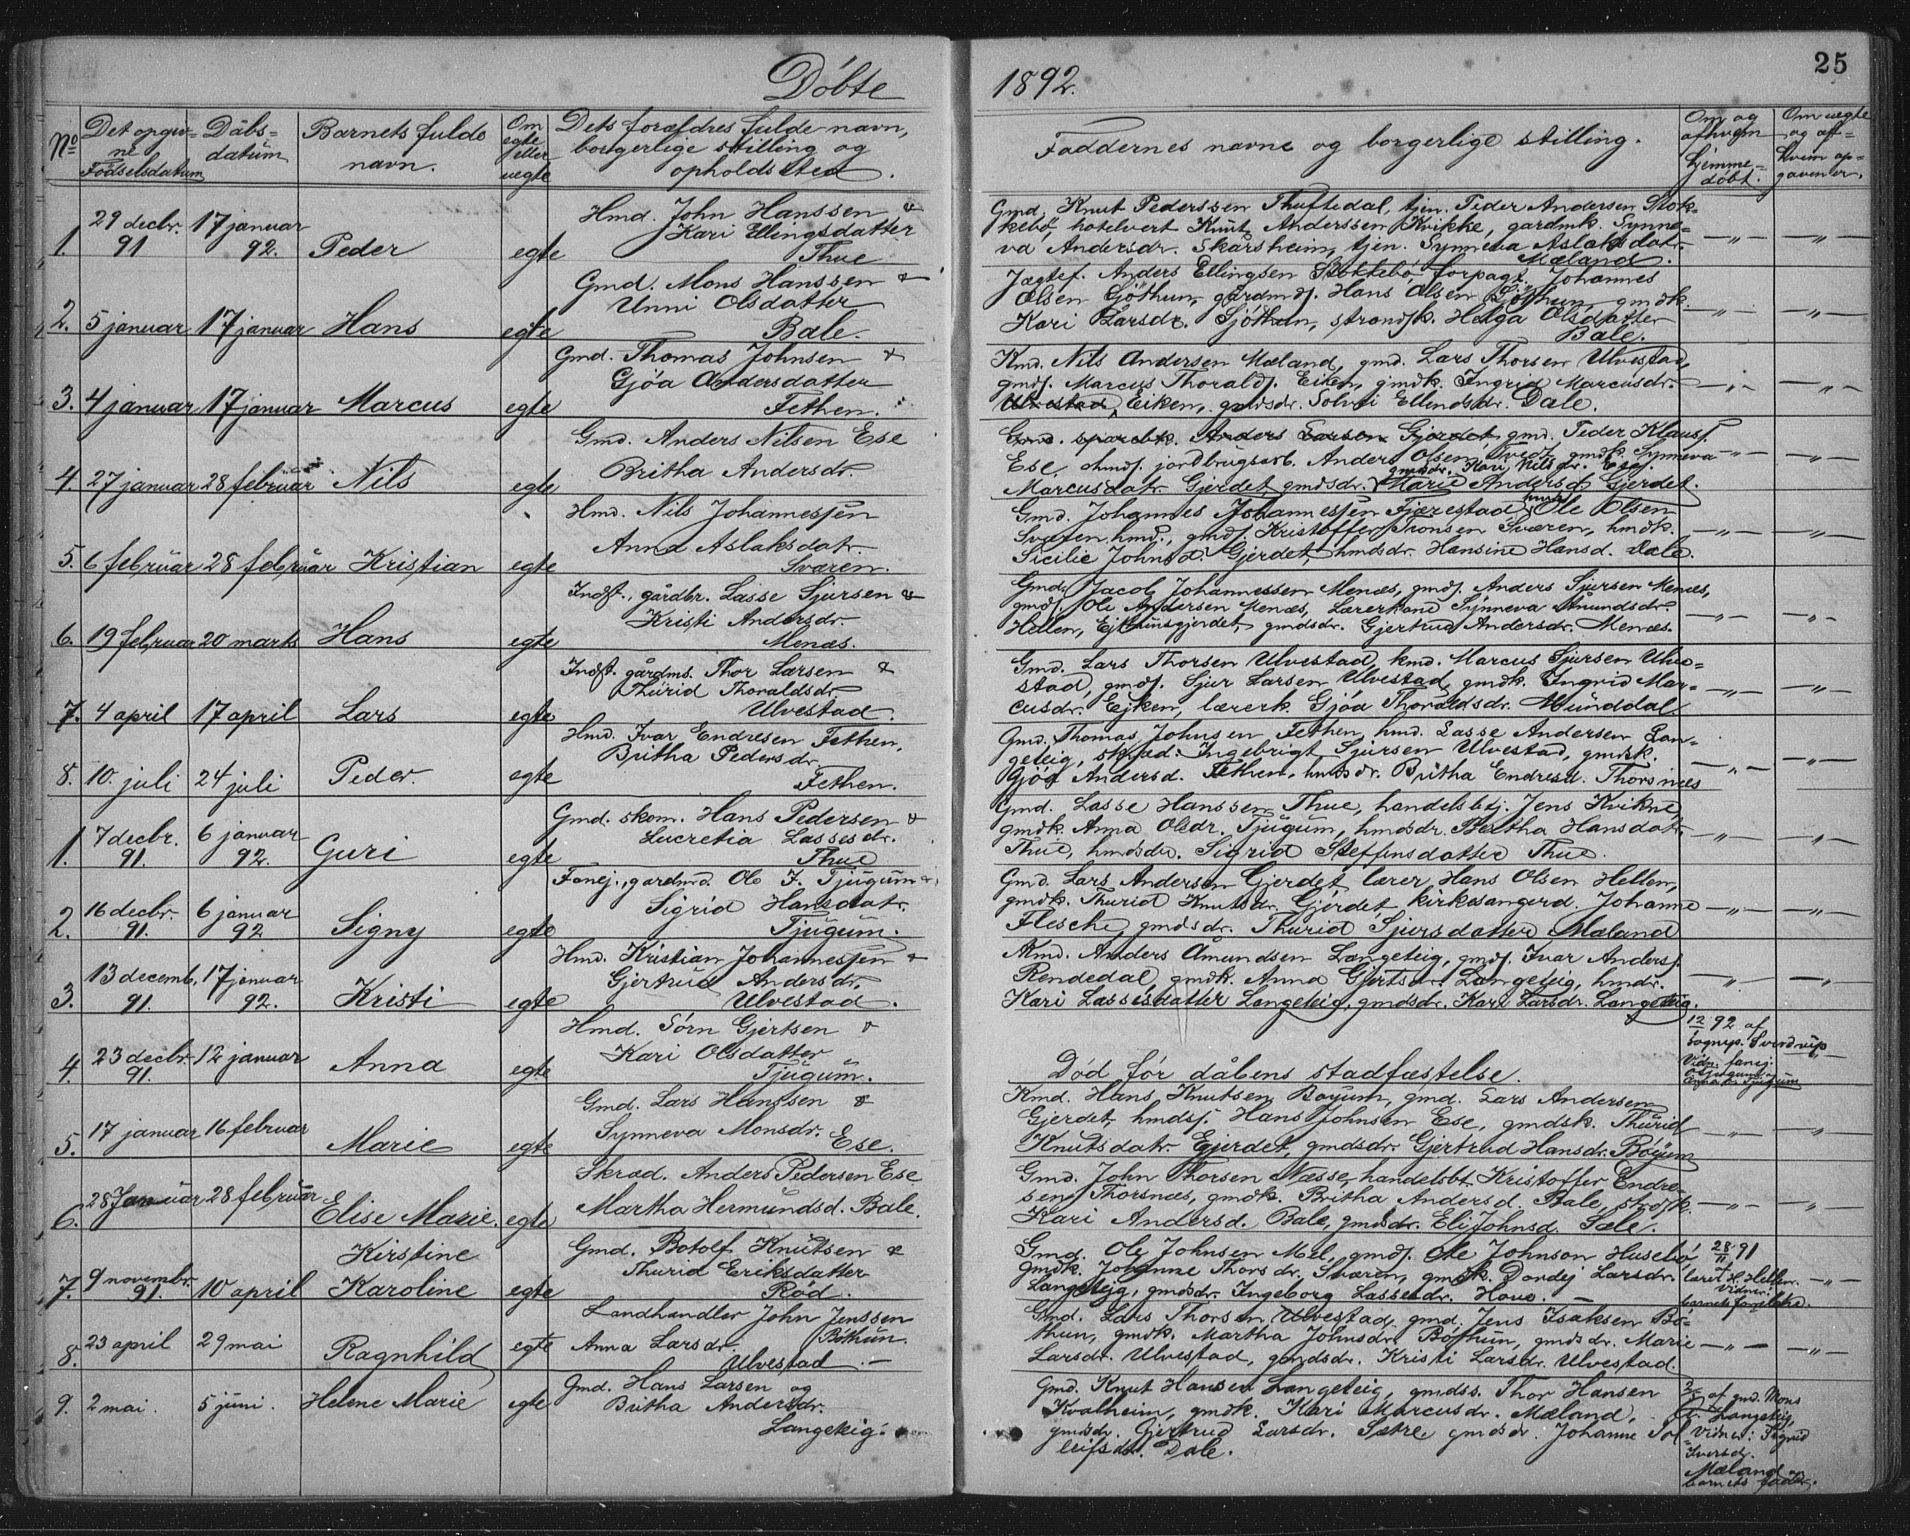 Döbte
1892.
25
No
Det opgiv-
ne
Födselsdatum
Dåbs-
datum
Barnets fulde
navn.
Om
egte
eller
uegte
Dets forældres fulde navn,
borgerlige stilling og
opholdssted.
Faddernes navne og borgerlige stilling.
Om og
af hvem
hjemme-
döbt.
Om uegte
og af-
hvem op-
gaven er.
1.
29 decbr.
91
17 januar
92.
Peder
egte
Hmd. John Hanssen &
Kari Ellingsdatter
Thue
Gmd. Knut Pederssen Thuftedal, tjen. Peder Andersen Stok-
kebö, hotelvert Knut Anderssen Kvikke, gardmk. Synne-
va Andersdr. Skarsheim, tjen. Synneva Aslaksdatr.
Mæland.
2.
5 januar
17 januar
Hans
egte
Gmd. Mons Hanssen &
Unni Olsdatter
Bale.
Jægtef. Anders Ellingsen Stokkebö, forpagt. Johannes
Olsen Sjöthun, gårdmds. Hans Olsen Sjöthun, gmdk.
Kari Larsdr. Sjöthun, strandsk. Helga Olsdatter
Bale.
3.
4 januar
17 januar
Marcus
egte
Gmd. Thomas Johnsen &
Gjöa Andersdatter
Fethen.
Kmd. Nils Andersen Mæland, gmd. Lars Thorsen Ulvestad,
gmds. Marcus Thoralds. Eiken, gmdk. Ingrid Marcusdr.
Ulvestad, Eiken, gmdsdr. Solvei Ellendsdr. Dale.
4.
27 januar
28 februar
Nils
egte
Gmd. Anders Nilsen Ese
Britha Andersdr.
Gmd. sparebk. Anders Larsen Gjerdet, gmd. Peder Klaus.
Ese, hmds. jordbrugsarb. Anders Olsen Tvedt, gmdk. Synneva
gmdsdr. Kari Nilsdr. Ese.
Marcusdatr. Gjerdet, gmdsdr. Marie Andersd. Gjerdet.
5.
6 februar
28 februar
Kristian
egte
Hmd. Nils Johannessen
Anna Aslaksdatr.
Sværen.
Gmd. Johannes Johannessen Fjærestad, Ole Olsen
Sværen hmd., gmds. Kristoffer Tronsen Sværen, hmdk.
Sicilie Johnsd. Gjerdet, hmdsdr. Hansine Hansd. Dale.
6.
19 februar
20 marts
Hans
egte
Indst., gårdbr. Lasse Sjursen &
Kristi Andersdr.
Menæs.
Gmd. Jacob Johannessen Menæs, gmds. Anders Sjursen Menæs,
gmds. Ole Andersen Menæs, Lærerkone Synneva Amundsdr.
Hellen, gmdsdr. Gjertrud Andersdr. Menæs.
7.
4 april
17 april
Lars
egte
Indst. gårdms. Thor Larsen &
Thurid Thoraldsdr.
Ulvestad.
Gmd. Lars Thorsen Ulvestad, kmd. Marcus Sjursen Ulve-
stad, gmds. Sjur Larsen Ulvestad, gmdk. Ingrid Mar-
cusdr. Ejken, lærerk. Gjöa Thoraldsdr. Mundal
8.
10. juli
24 juli
Peder.
egte
Hmd. Ivar Endresen Fethen,
Britha Pedersdr.
Fethen.
Gmd. Thomas Johnsen Fethen, hmd. Lasse Andersen Lan-
geteig, Ingebrigt Sjursen Ulvestad, gmdsk.
Gjöa Andersd. Fethen, hmdsdr. Britha Endresd. Thorsnæs
1.
7 decbr.
91.
6 januar
92.
Guri
egte
Gmd. skom. Hans Pedersen &
Lucretia Lassesdr.
Thue
Gmd. Lasse Hanssen Thue, handelsbtj. Jens Kvikne,
gmdk. Anna Olsdr. Tjugum, hmdsdr. Britha Hansdatr.
Thue, hmdsdr. Sigrid Steffensdatter Thue.
2.
16 decbr.
91.
6 januar
92.
Signy
egte
Fanej., gardmd. Ole J. Tjugum &
Sigrid Hansdatr.
Tjugum.
Gmd. Lars Andersen Gjerdet, lærer Hans Olsen Hellen,
gmdk. Thurid Knutsdr. Gjerdet, kirkesangerd. Johanne
Flesche, gmdsdr. Thurid Sjursdatter Mæland
3.
13 decemb.
91.
17 januar
92.
Kristi
egte
Hmd. Kristian Johannessen &
Gjertrud Andersdr.
Ulvestad.
Kmd. Anders Åmundsen Langeteig, gmds. Ivar Anders.
Rendedal, gmdk. Anna Gjertsdr. Langeteig, hmdr.
Kari Lassesdatter Langeteig, gmdsdr. Kari Larsdr. Langeteig.
4.
23 decbr.
91.
12 januar
Anna
egte
Hmd. Sörn Gjertsen &
Kari Olsdatter
Tjugum.
Död för dåbens stadfæstelse.
12/1 92 af
sognep. Sverdrup
Vidn. fanej.
O. Tjugum
5.
17 januar
16 februar
Marie
egte
Gmd. Lars Hanssen &
Synneva Monsdr.
Ese.
Kmd. Hans Knutsen Böyum, gmd. Lars Andersen
Gjerdet, hmds. Hans Johnsen Ese, gmdsk. Thurid
Knutsdatr. Gjerdet, gmdsdr. Gjertrud Hansdr. Böyum
6.
28 Januar
28 februar
Elise Marie.
egte
Skræd. Anders Pedersen Ese
Martha Hermundsd. Bale.
Gmd. John Thorsen Næsse, handelsbt. Kristoffer Endre-
sen Thorsnæs, gmdk. Britha Andersd. Bale, strdsk.
Kari Andersd. Bale, gmdsdr. Eli Johnsd. Sæle.
7.
9 novembr.
91.
10 april
Kirstine
Karoline
egte
Gmd. Botolf Knutsen &
Thurid Eriksdatter
Röd.
Gmd. Ole Johnsen Mel, gmds. Ole Johnson Husebö,
gmdk. Johanne Thorsdr. Sværen, gmdk. Dordej Larsdr.
Langeteig, gmdsdr. Ingeborg Lassesdr. Hove.
28/11 91
lærer H. Hellen.
Vidner:
barnets forældre.
8.
23 april
29 mai
Ragnhild
egte
Landhandler John Jenssen
Böthun.
Anna Larsdr.
Ulvestad.
Gmd. Lars Thorsen Ulvestad, gmd. Jens Isaksen Bö-
thun, gmdk. Martha Johnsdr. Böthun, gmdsdr. Marie
Larsdr. Ulvestad, gmdsdr. Kristi Larsdr. Ulvestad.
9.
2 mai.
5 juni.
Helene Marie
egte
Gmd. Hans Larsen og
Britha Andersdr.
Langeteig.
Gmd. Knut Hansen Langeteig, gmdss. Thor Hansen
Kvalheim, gmdk. Kari Marcusdr. Mæland,
gmdsdr. Gjertrud Larsdr. Sætre, gmdsdr. Johanne Sol-
leifsdr. Dale.
af gmd. Mons
Langeteig,
Vidner: Sigrid
Iversdr.
Mæland
barnets fader.